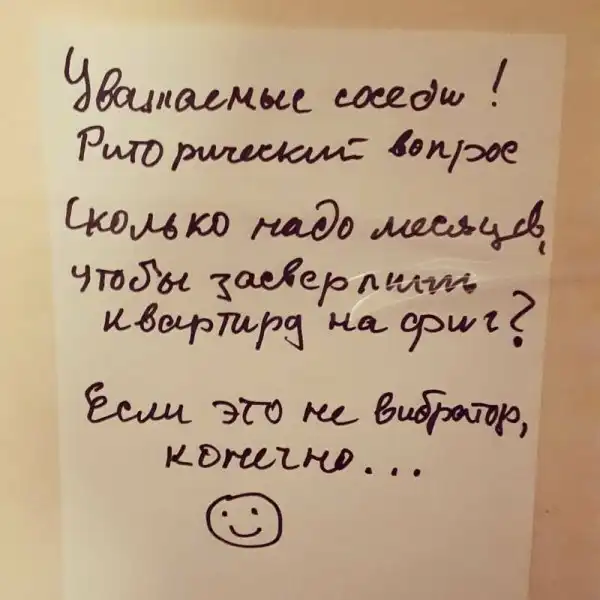 Уважаемые соседи!
Риторический вопрос
Сколько надо месяцев,
чтобы засверлить
квартиру на фиг?
Если это не вибратор,
конечно...